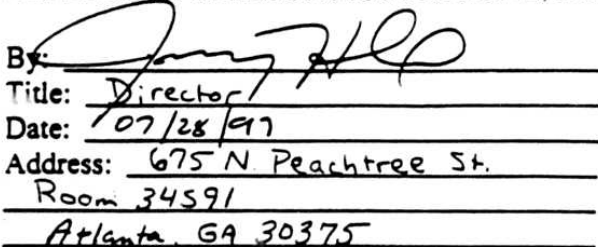 By:
Title: Director
Date: 07/28/97
Address: 675 N. Peachtree St.
Room 34S91
Atlanta, GA 30375